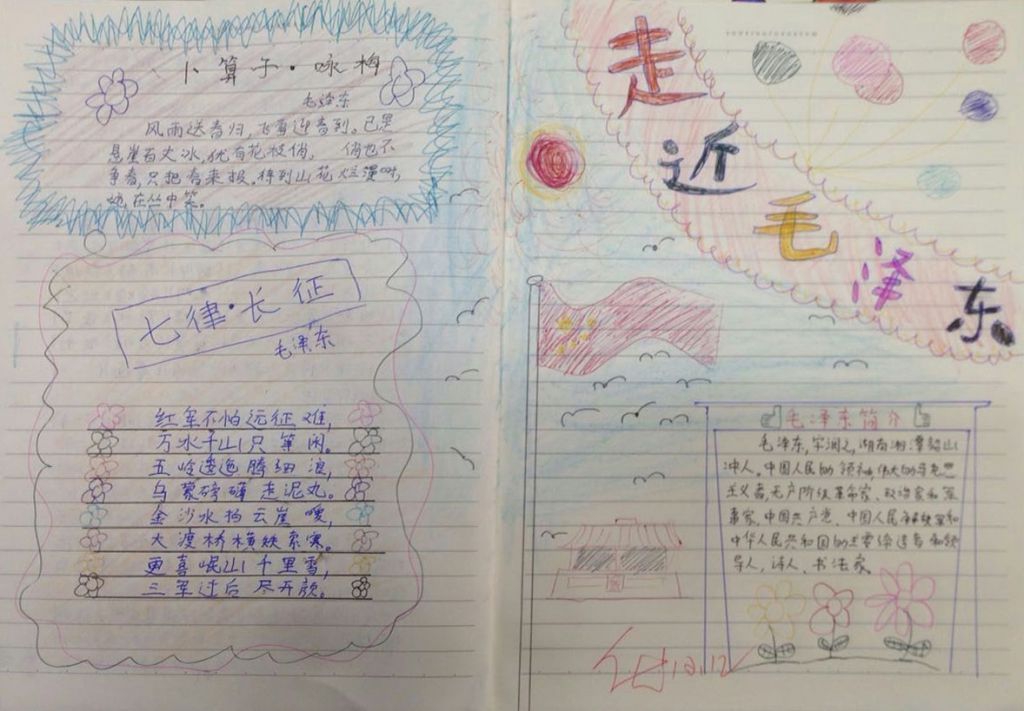 卜算子·咏梅
毛泽东
风雨送春归,飞雪迎春到。已是
悬崖百丈冰,犹有花枝俏。 俏也不
争春,只把春来报。待到山花烂漫时,
她在丛中笑。
七律·长征
毛泽东
红军不怕远征难,
万水千山只等闲。
五岭逶迤腾细浪,
乌蒙磅礴走泥丸。
金沙水拍云崖暖,
大渡桥横铁索寒。
更喜岷山千里雪,
三军过后尽开颜。
走近毛泽东
毛泽东简介
毛泽东,字润之,湖南湘潭韶山
冲人。中国人民的领袖,伟大的马克思
主义者,无产阶级革命家、政治家和军
事家,中国共产党、中国人民解放军和
中华人民共和国的主要缔造者和领
导人,诗人、书法家。
10.12